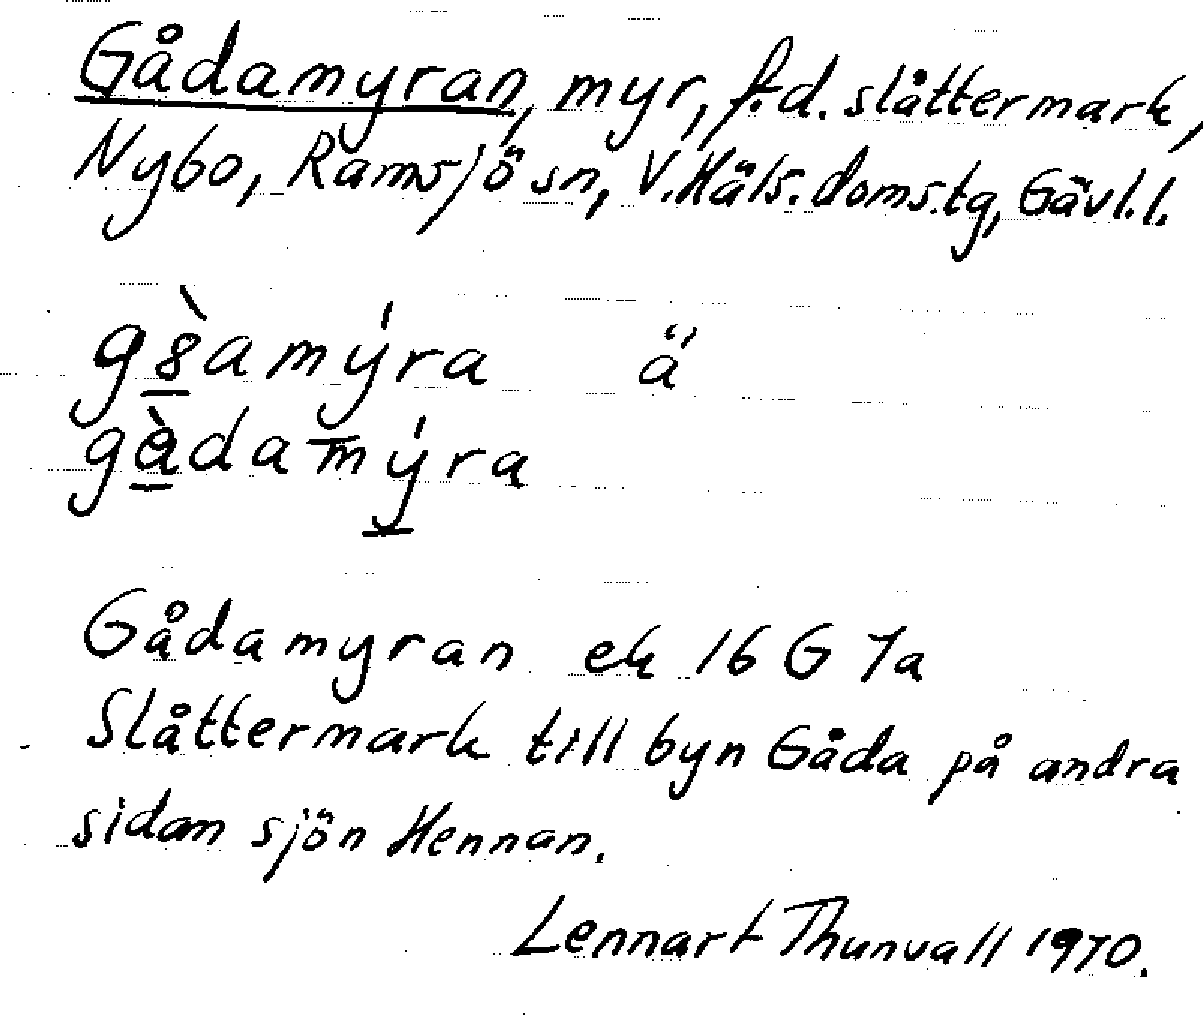 Gådamyran, myr, f.d. slåttermark,
Nybo, Ramsjö sn, V.Häls.doms.tg, Gävl.l.
g8̠̀amýra ä
gå̠̀damý̠ra
Gådamyran ek 16 G 7a
Slåttermark till byn Gåda på andra
sidan sjön Hennan.
Lennart Thunvall 1970.